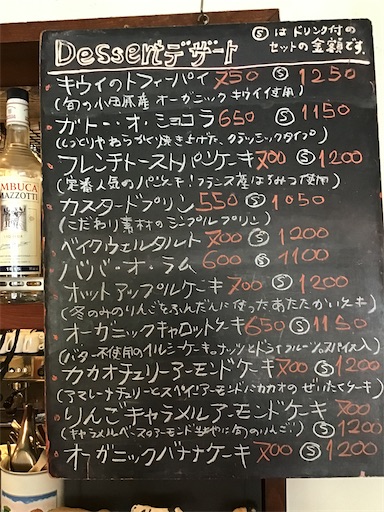 Dessertデザート
Ⓢ は ドリンク付の
セットの金額です。
キウイのトフィーパイ 750 Ⓢ 1250
(旬の小田原産 オーガニック キウイ使用)
ガトー・オ・ショコラ 650 Ⓢ 1150
(しっとりやわらかく焼き上げた、クラッシックタイプ)
フレンチトーストパンケーキ 700 Ⓢ 1200
(定番人気のパンケーキ!フランス産はちみつ使用)
カスタードプリン 550 Ⓢ 1050
(こだわり素材のシンプルプリン)
ベイクウェルタルト 700 Ⓢ 1200
ババ・オ・ラム 600 Ⓢ 1100
ホットアップルケーキ 700 Ⓢ 1200
(冬のみのりんごをふんだんに使ったあたたかいケーキ)
オーガニックキャロットケーキ 650 Ⓢ 1150
(バター不使用のヘルシーケーキ。ナッツとドライフルーツ。スパイス入)
カカオチェリーアーモンドケーキ 700 Ⓢ 1200
(アマレーナチェリーとスペインアーモンドとカカオの ぜいたくケーキ)
りんごキャラメルアーモンドケーキ 700
(キャラメルベースのアーモンド生地に旬のりんご!) Ⓢ 1200
オーガニックバナナケーキ 700 Ⓢ 1200
MBUCA
MAZZOTTI